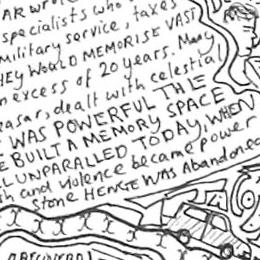 AR wrote
specialists who
military service, takes
HEY WOULD MEMORISE VAST
n excess of 20 years. Many
easar, dealt with celestial
WAS POWERFUL THE
E BUILT A MEMORY SPACE
L UNPARALLED TODAY, WHEN
th and violence became power
Stone HENGE WAS Abandoned